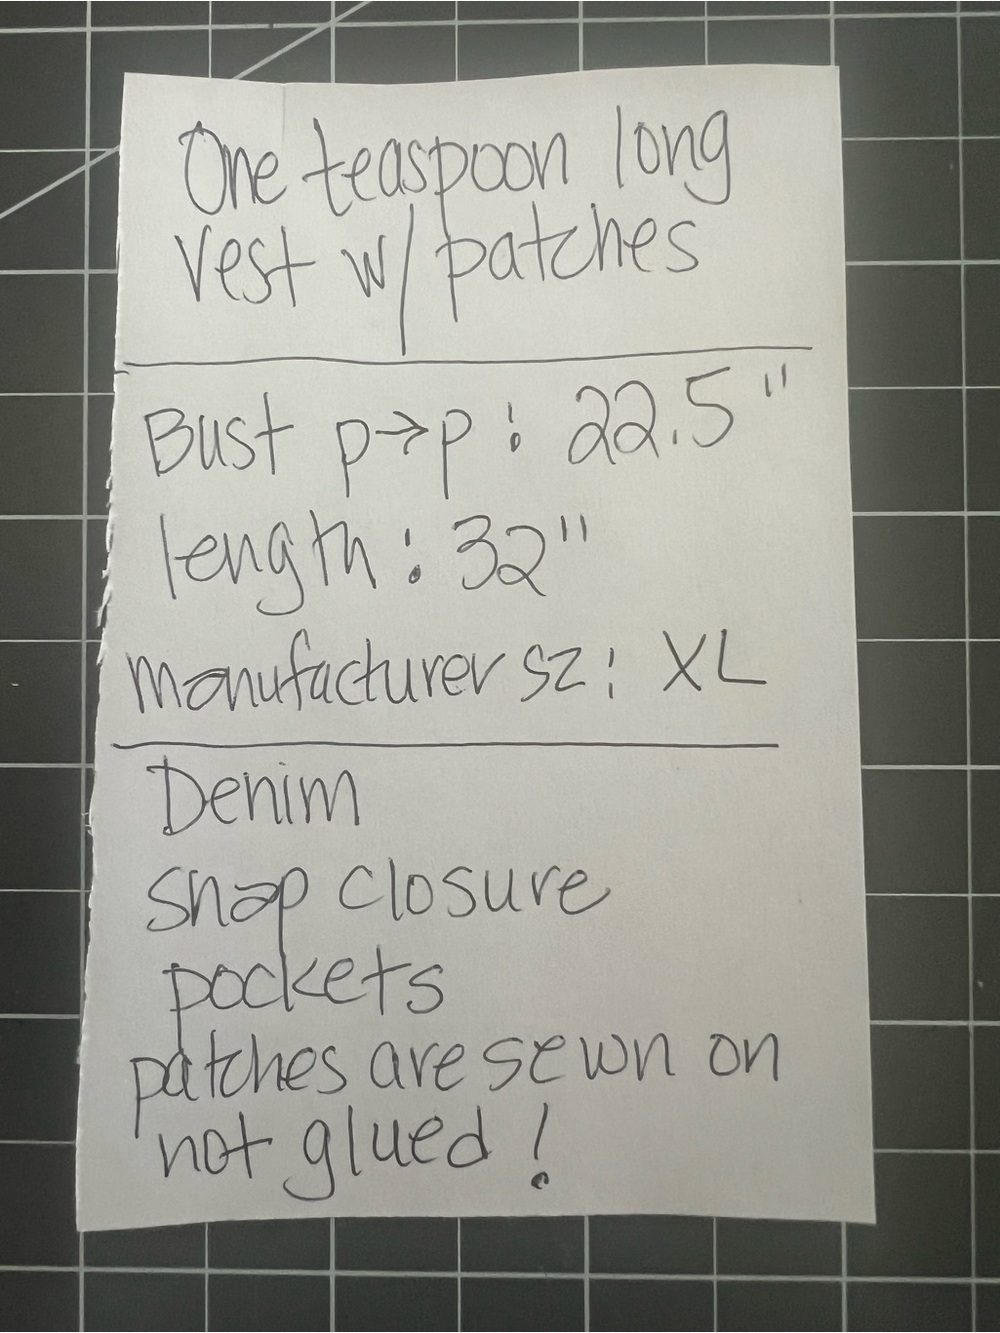 One teaspoon long
vest w/ patches
Bust p→p: 22.5"
length: 32"
manufacturer sz: XL
Denim
snap closure
pockets
patches are sewn on
not glued!